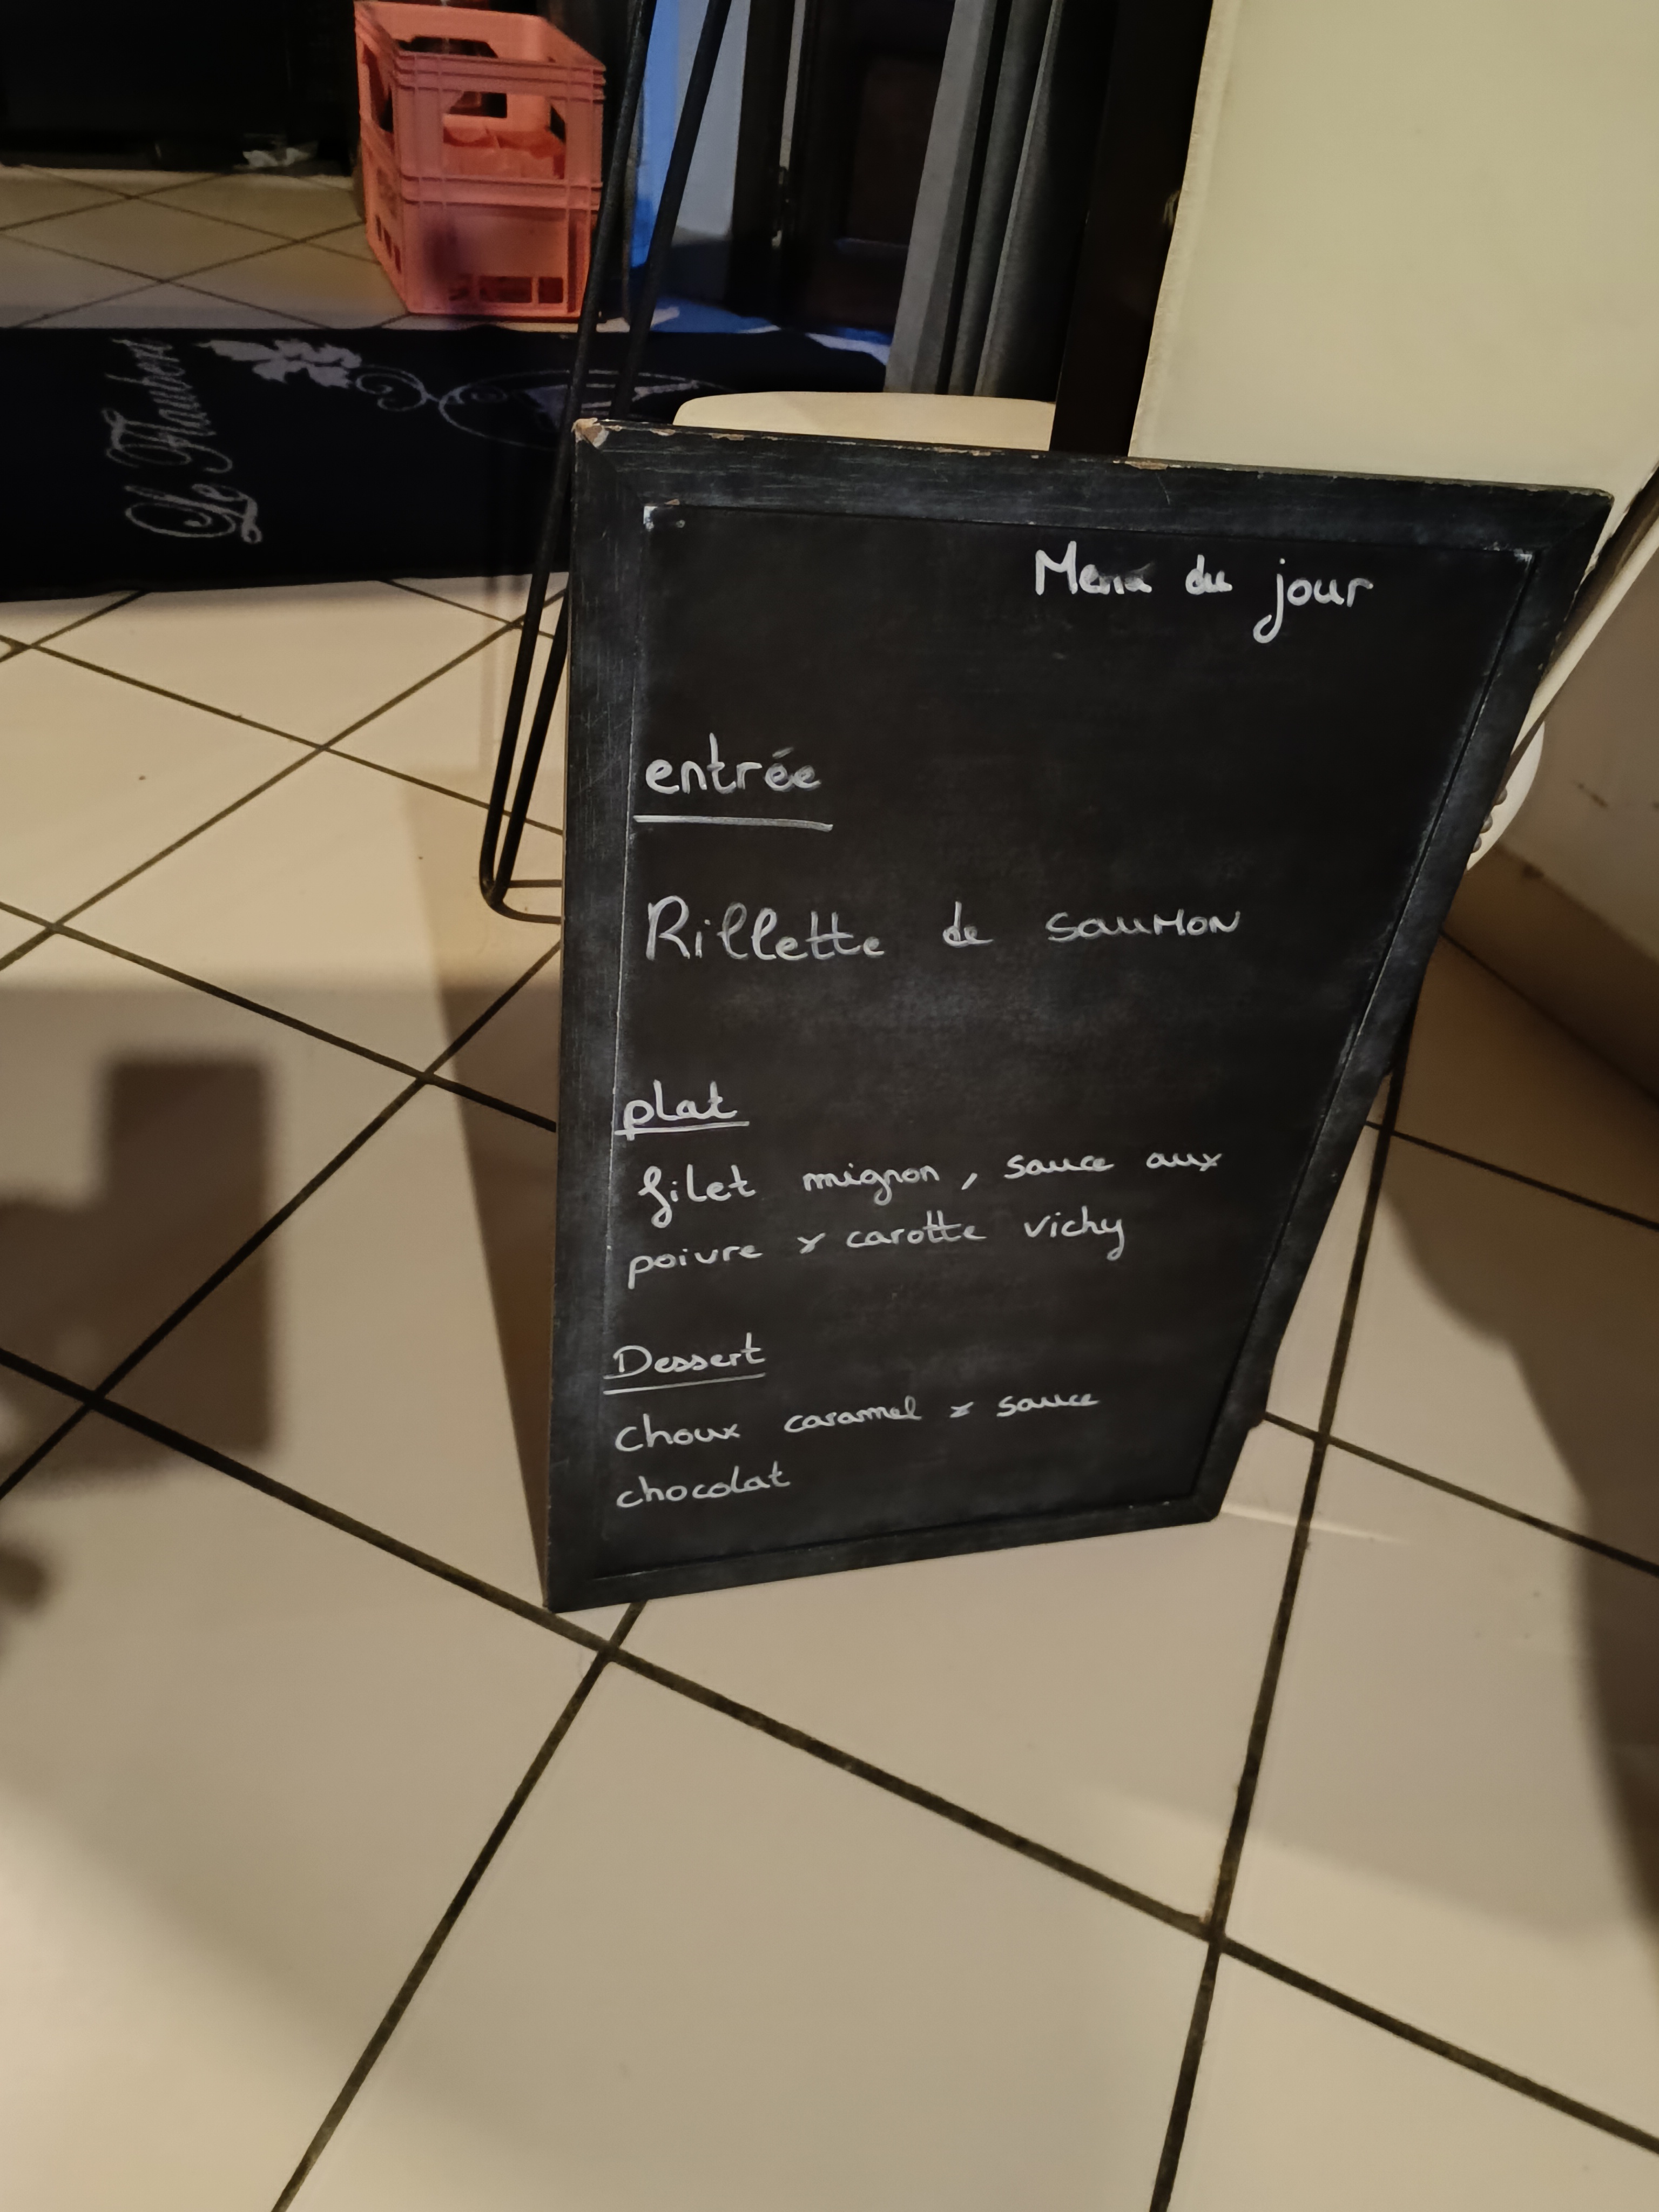 Le Flaubert
Menu du jour
entrée
Rillette de saumon
plat
filet mignon, sauce aux
poivre & carotte vichy
Dessert
Choux caramel & sauce
chocolat